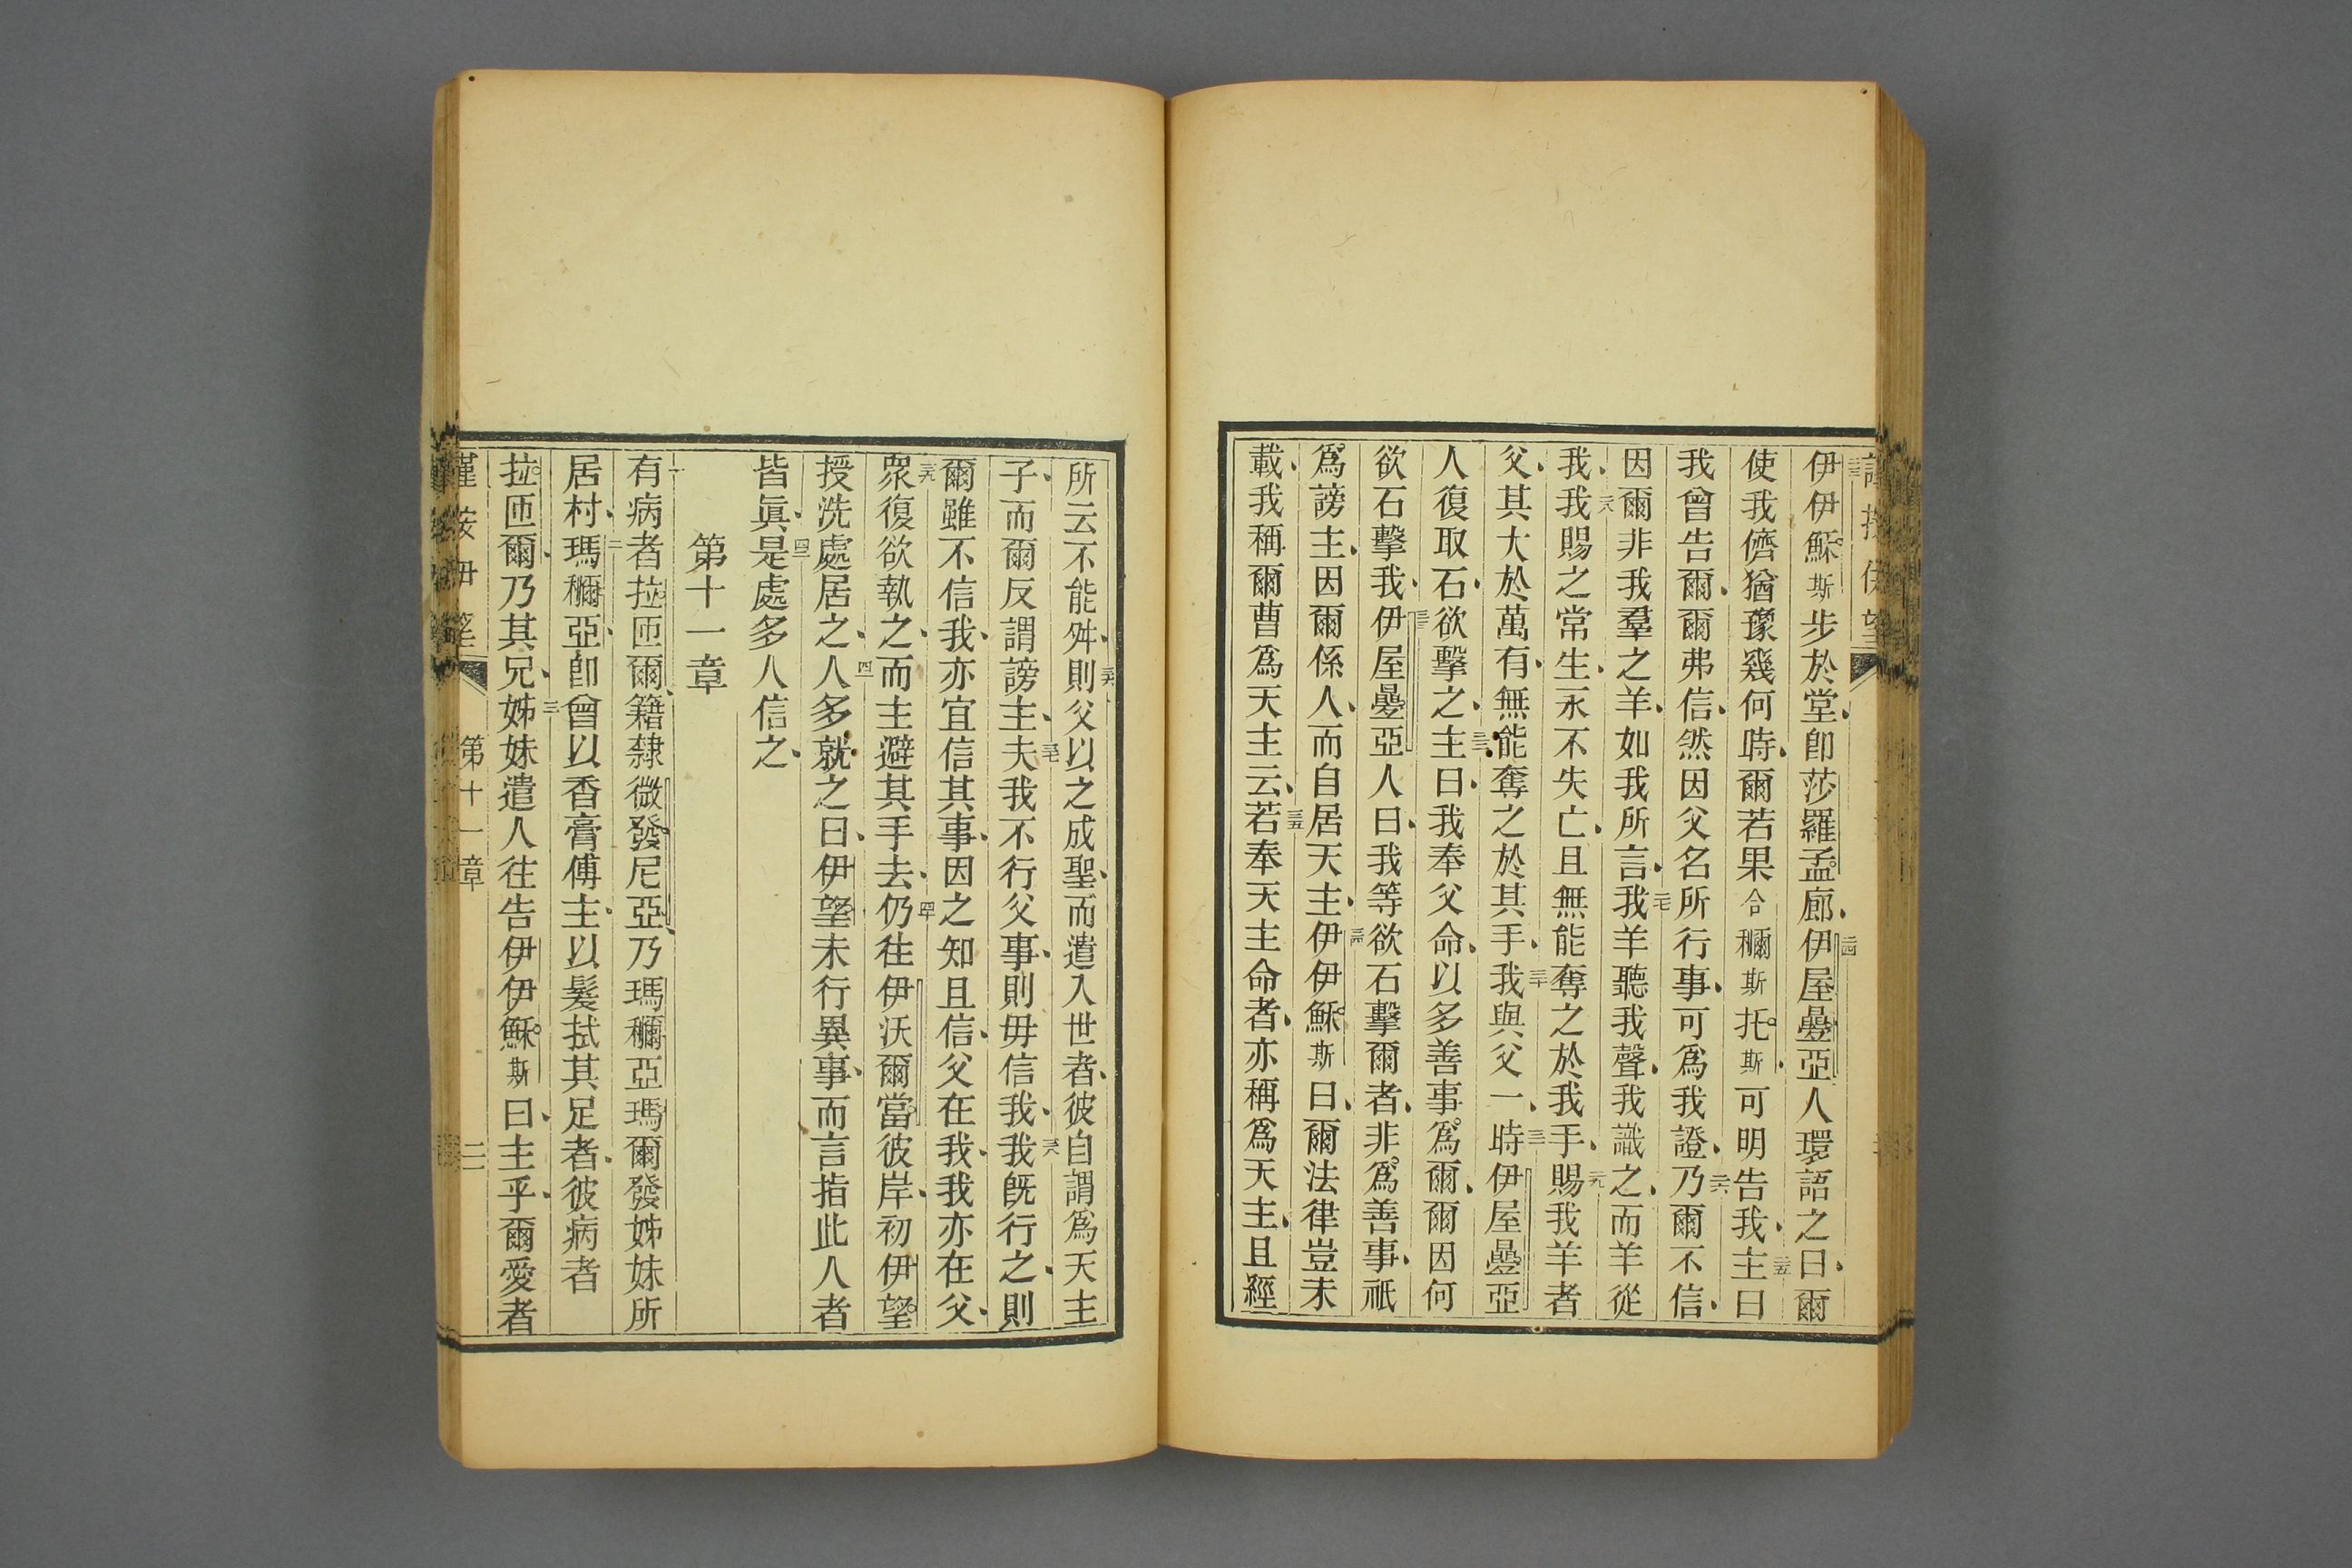 伊伊穌斯步於堂卽莎羅孟廊伊屋疊亞人環語之曰爾
使我儕猶豫幾何時爾若果合穪斯托斯可明告我主曰
我曾告爾爾弗信然因父名所行事可爲我證乃爾不信
因爾非我羣之羊如我所言我羊聽我聲我識之而羊從
我我賜之常生永不失亡且無能奪之於我手賜我羊者
父其大於萬有無能奪之於其手我與父一時伊屋疊亞
人復取石欲擊之主曰我奉父命以多善事爲爾爾因何
欲石擊我伊屋疊亞人曰我等欲石擊爾者非爲善事祇
爲謗主因爾係人而自居天主伊伊穌斯曰爾法律豈未
載我稱爾曹爲天主云若奉天主命者亦稱爲天主且經
所云不能舛則父以之成聖而遣入世者彼自謂爲天主
子而爾反謂謗主夫我不行父事則毋信我我旣行之則
爾雖不信我亦宜信其事因之知且信父在我我亦在父
衆復欲執之而主避其手去仍往伊沃爾當彼岸初伊望
授洗處居之人多就之曰伊望未行異事而言指此人者
皆眞是處多人信之
第十一章
有病者拉匝爾籍隸微發尼亞乃瑪穪亞瑪爾發姊妹所
居村瑪穪亞卽曾以香膏傅主以髮拭其足者彼病者
拉匝爾乃其兄姊妹遣人往告伊伊穌斯曰主乎爾愛者
第十一章